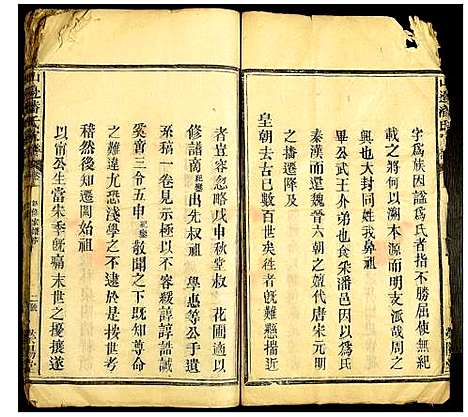 字爲族因諡爲氏者指不勝屈使無紀
載之將何以溯本源而明支派哉周之
興也大封同姓我鼻祖
公武王介弟也食采潘邑因以爲氏
秦漢而還魏晉六朝之嬗代唐宋元明
之播遷降及
皇朝去古已數百世矣徃者旣難懸揣近
者豈容忽略戊中秋堂叔 花圃適以
修譜商 出先叔祖 學惠等公于遺
系稿一卷見示極以不容緩諄諄誥誡
奚啻三令五申 敢聞之下旣知爲
之難違九愆淺學之不逮于是按世考
稽然後知遷閩始祖
以甯公生當宋季旣痛末世之擾攘遂